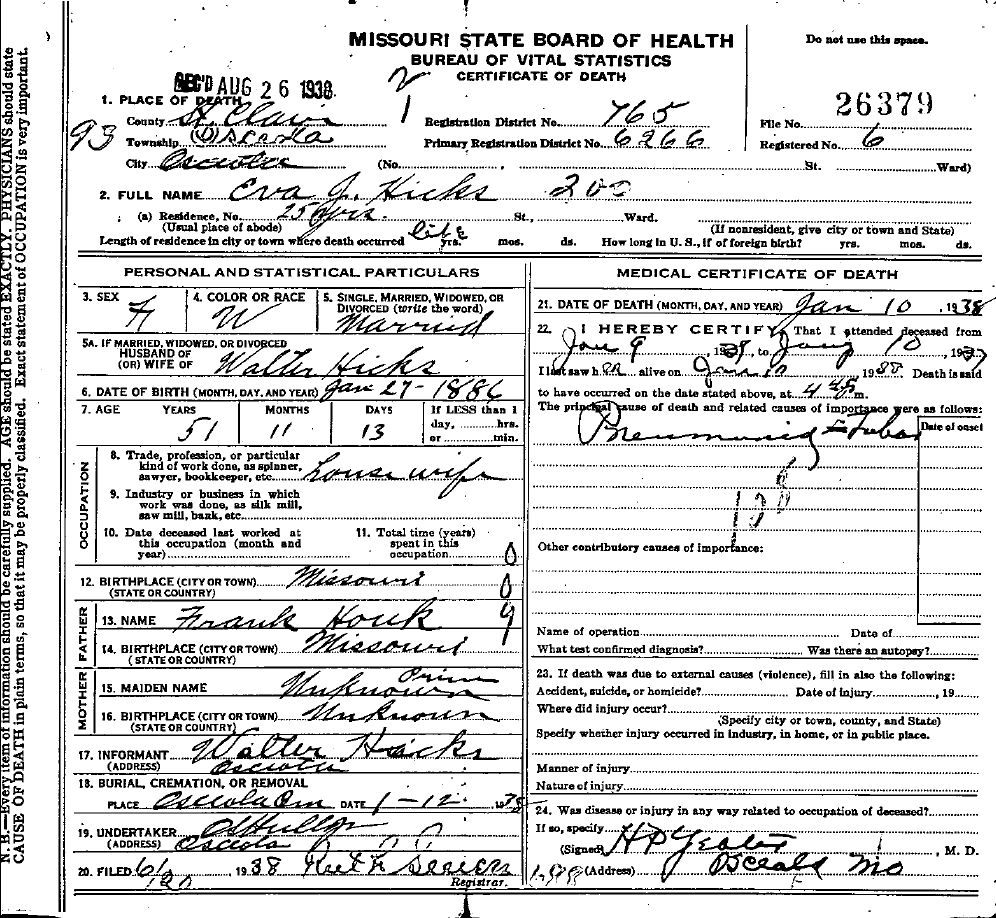 MISSOURI STATE BOARD OF HEALTH
BUREAU OF VITAL STATISTICS
CERTIFICATE OF DEATH
Do not use this space.
REC'D AUG 26 1938
26379
1. PLACE OF DEATH
County St. Clair Registration District No. 765 File No.
93 Township Osceola Primary Registration District No. 6266 Registered No. 6
City Osceola (No. St. Ward)
2. FULL NAME Eva J. Hicks 200
(a) Residence, No. 25 yrs. St., Ward.
(Usual place of abode) (If nonresident, give city or town and State)
Length of residence in city or town where death occurred life yrs. mos. ds. How long in U. S., if of foreign birth? yrs. mos. ds.
PERSONAL AND STATISTICAL PARTICULARS
3. SEX F
4. COLOR OR RACE W
5. SINGLE, MARRIED, WIDOWED, OR
DIVORCED (write the word)
Married
5A. IF MARRIED, WIDOWED, OR DIVORCED
HUSBAND OF
(OR) WIFE OF Walter Hicks
6. DATE OF BIRTH (MONTH, DAY, AND YEAR) Jan 27 - 1886
7. AGE YEARS MONTHS DAYS If LESS than 1
day, hrs.
or min.
51 11 13
OCCUPATION
8. Trade, profession, or particular
kind of work done, as spinner,
sawyer, bookkeeper, etc. housewife
9. Industry or business in which
work was done, as silk mill,
saw mill, bank, etc.
10. Date deceased last worked at
this occupation (month and
year)
11. Total time (years)
spent in this
occupation
0
12. BIRTHPLACE (CITY OR TOWN) Missouri 0
(STATE OR COUNTRY)
FATHER
13. NAME Frank Houk 9
14. BIRTHPLACE (CITY OR TOWN) Missouri
(STATE OR COUNTRY)
MOTHER
15. MAIDEN NAME Unknown
16. BIRTHPLACE (CITY OR TOWN) Unknown
(STATE OR COUNTRY)
17. INFORMANT Walter Hicks
(ADDRESS) Osceola
18. BURIAL, CREMATION, OR REMOVAL
PLACE Osceola Cem DATE 1-12- 1938
19. UNDERTAKER
(ADDRESS) Osceola
20. FILED 6/20 1938 Ruth
Registrar.
MEDICAL CERTIFICATE OF DEATH
21. DATE OF DEATH (MONTH, DAY, AND YEAR) Jan 10 , 1938
22. I HEREBY CERTIFY, That I attended deceased from
Jan 9 , 193 , to Jany 10 , 193
I last saw her alive on Jan 10 1938. Death is said
to have occurred on the date stated above, at 4 45 m.
The principal cause of death and related causes of importance were as follows:
Date of onset
Pneumonia - Lobar
108
Other contributory causes of importance:
Name of operation Date of
What test confirmed diagnosis? Was there an autopsy?
23. If death was due to external causes (violence), fill in also the following:
Accident, suicide, or homicide? Date of injury , 19
Where did injury occur?
(Specify city or town, county, and State)
Specify whether injury occurred in industry, in home, or in public place.
Manner of injury
Nature of injury
24. Was disease or injury in any way related to occupation of deceased?
If so, specify
(Signed) , M. D.
(Address) Osceola Mo
N. B.—Every item of information should be carefully supplied. AGE should be stated EXACTLY. PHYSICIANS should state
CAUSE OF DEATH in plain terms, so that it may be properly classified. Exact statement of OCCUPATION is very important.